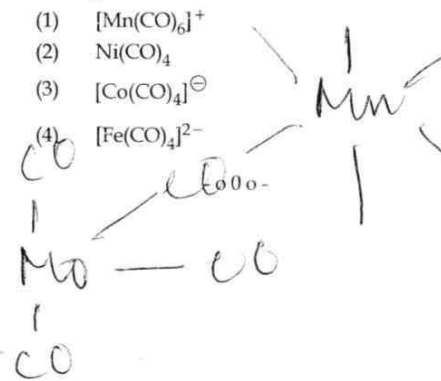 (1) [Mn(CO)₆]⁺
(2) Ni(CO)₄
(3) [Co(CO)₄]⊖
(4) [Fe(CO)₄]²⁻
Mn
CO
CO
- o 0 o -
Mo — CO
CO